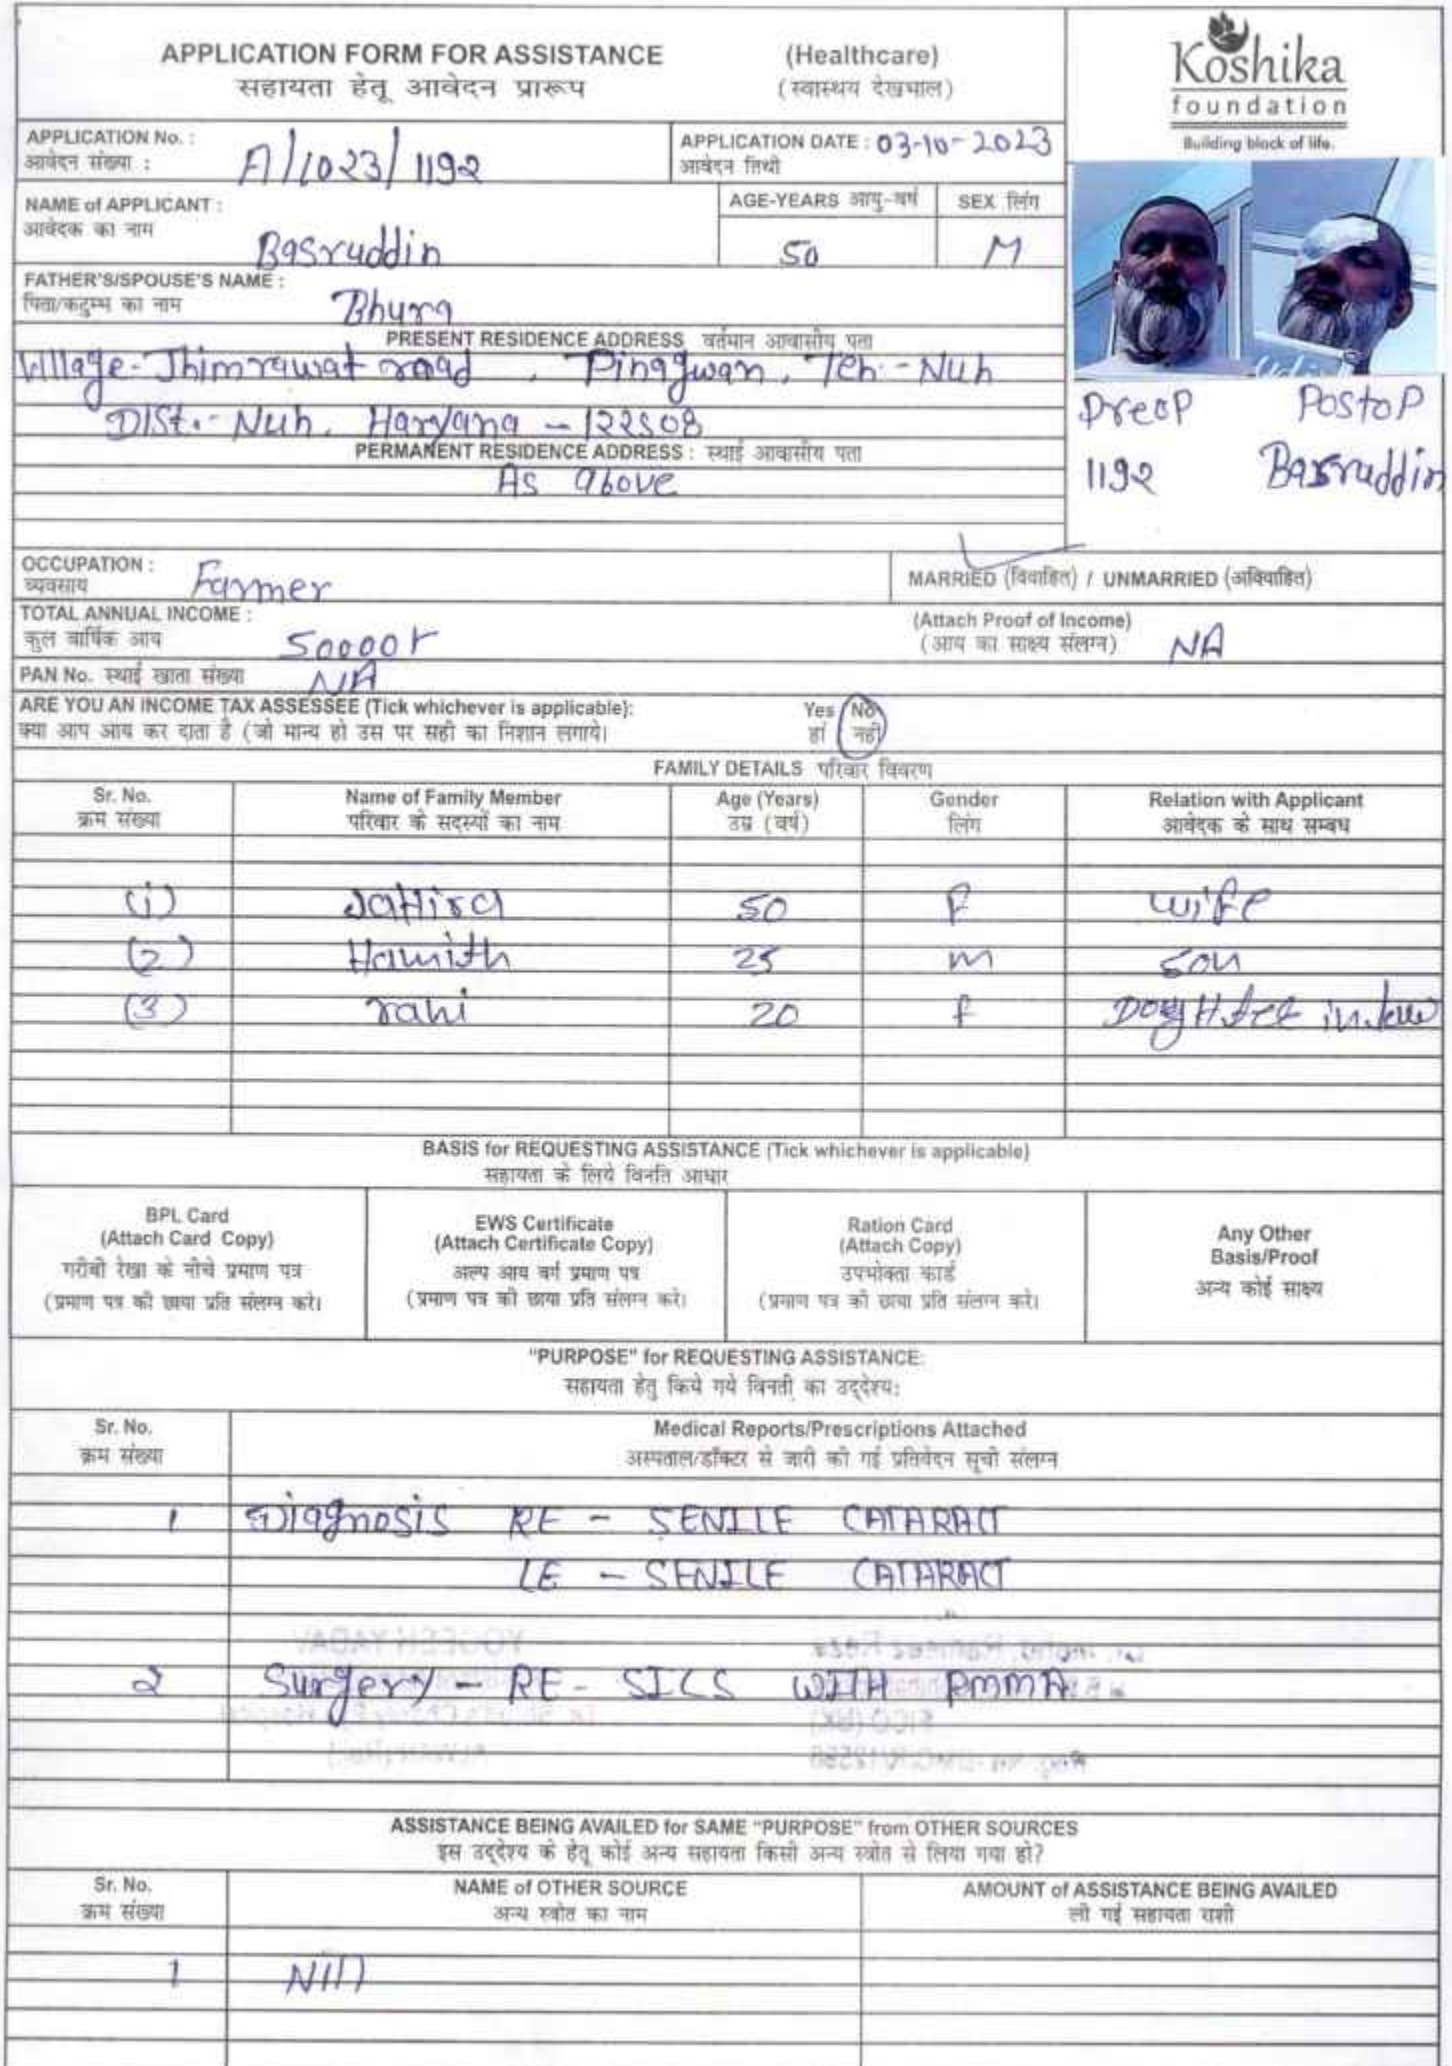 APPLICATION FORM FOR ASSISTANCE (Healthcare)
सहायता हेतू आवेदन प्रारूप (स्वास्थय देखभाल)
Koshika
foundation
Building block of life.
APPLICATION No. : A/1023/1192
आवेदन संख्या :
APPLICATION DATE : 03-10-2023
आवेदन तिथी
NAME of APPLICANT : Basruddin
आवेदक का नाम
AGE-YEARS आयु-वर्ष SEX लिंग
50 M
FATHER'S/SPOUSE'S NAME : Bhura
पिता/कटुम्भ का नाम
PRESENT RESIDENCE ADDRESS वर्तमान आवासीय पता
Village-Jhimrawat road, Pinagwan, Teh.-Nuh
Dist.-Nuh, Haryana - 122508
PERMANENT RESIDENCE ADDRESS : स्थाई आवासीय पता
As above
Preop Postop
1192 Basruddin
OCCUPATION : Farmer
व्यवसाय
MARRIED (विवाहित) / UNMARRIED (अविवाहित)
TOTAL ANNUAL INCOME :
कुल वार्षिक आय 50000r
(Attach Proof of Income)
(आय का साक्ष्य संलग्न) NA
PAN No. स्थाई खाता संख्या NA
ARE YOU AN INCOME TAX ASSESSEE (Tick whichever is applicable): Yes No
क्या आप आय कर दाता है (जो मान्य हो उस पर सही का निशान लगाये। हां नहीं
FAMILY DETAILS परिवार विवरण
Sr. No. Name of Family Member Age (Years) Gender Relation with Applicant
क्रम संख्या परिवार के सदस्यों का नाम उम्र (वर्ष) लिंग आवेदक के साथ सम्बध
(1) Jahira 50 F wife
(2) Hamith 25 m son
(3) rahi 20 f
BASIS for REQUESTING ASSISTANCE (Tick whichever is applicable)
सहायता के लिये विनति आधार
BPL Card
(Attach Card Copy)
गरीबी रेखा के नीचे प्रमाण पत्र
(प्रमाण पत्र की छाया प्रति संलग्न करे।
EWS Certificate
(Attach Certificate Copy)
अल्प आय वर्ग प्रमाण पत्र
(प्रमाण पत्र की छाया प्रति संलग्न करे।
Ration Card
(Attach Copy)
उपभोक्ता कार्ड
(प्रमाण पत्र की छाया प्रति संलग्न करे।
Any Other
Basis/Proof
अन्य कोई साक्ष्य
"PURPOSE" for REQUESTING ASSISTANCE:
सहायता हेतु किये गये विनती का उद्देश्य:
Sr. No. Medical Reports/Prescriptions Attached
क्रम संख्या अस्पताल/डॉक्टर से जारी की गई प्रतिवेदन सूची संलग्न
1 Diagnosis RE - SENILE CATARACT
LE - SENILE CATARACT
2 Surgery - RE- SICS WITH PMMA
ASSISTANCE BEING AVAILED for SAME "PURPOSE" from OTHER SOURCES
इस उद्देश्य के हेतू कोई अन्य सहायता किसी अन्य स्त्रोत से लिया गया हो?
Sr. No. NAME of OTHER SOURCE AMOUNT of ASSISTANCE BEING AVAILED
क्रम संख्या अन्य स्त्रोत का नाम ली गई सहायता राशी
1 Nill